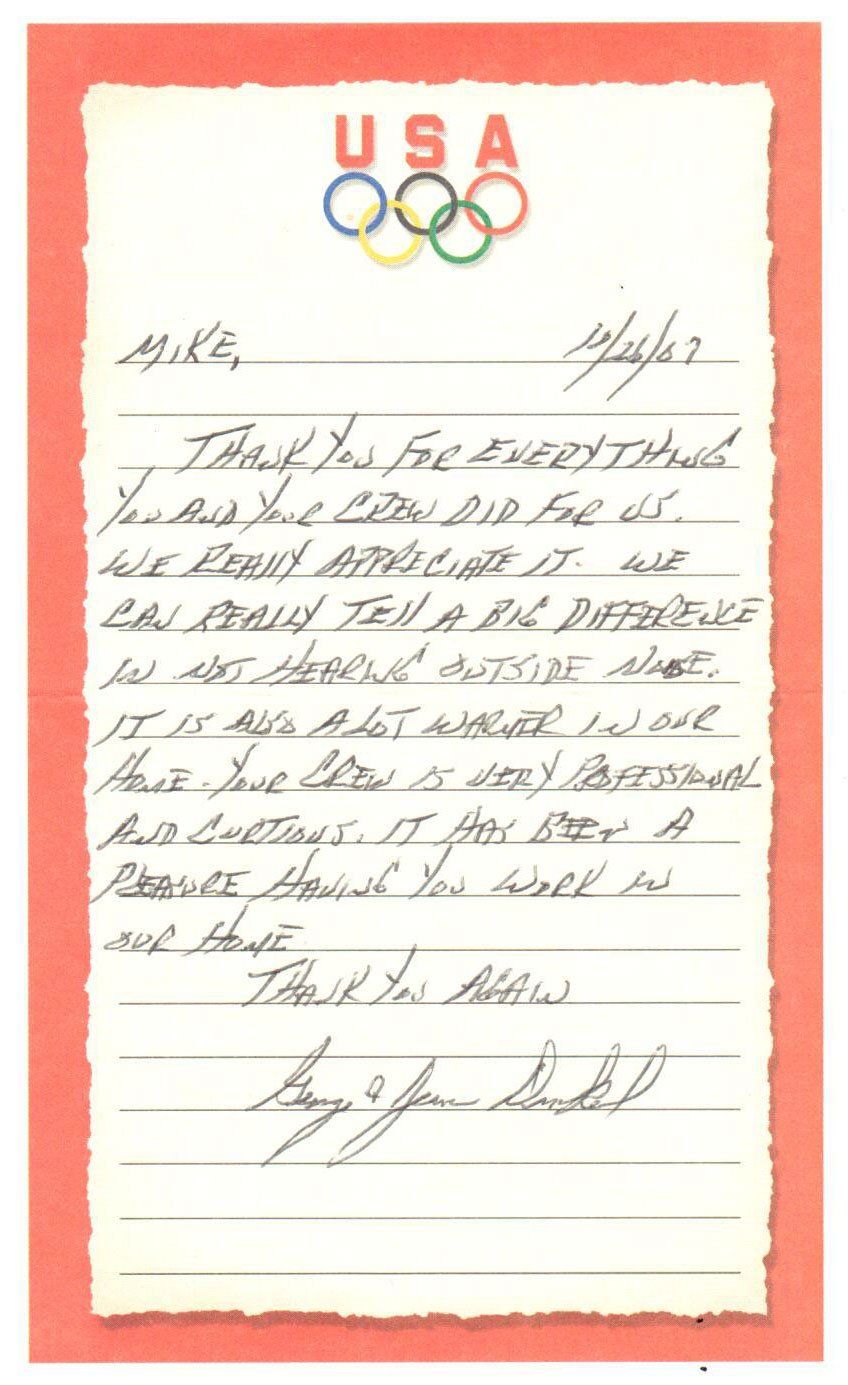 USA
MIKE, 10/26/07
THANK YOU FOR EVERYTHING
YOU AND YOUR CREW DID FOR US.
WE REALLY APPRECIATE IT. WE
CAN REALLY TELL A BIG DIFFERENCE
IN NOT HEARING OUTSIDE NOISE.
IT IS ALSO A LOT WARMER IN OUR
HOME. YOUR CREW IS VERY PROFESSIONAL
AND CURTIOUS. IT HAS BEEN A
PLEASURE HAVING YOU WORK IN
OUR HOME
THANK YOU AGAIN
George & Jean